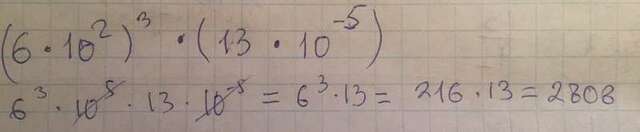 (6 · 10²)³ · (13 · 10⁻⁵)
6³ · 10⁵ · 13 · 10⁻⁵ = 6³ · 13 = 216 · 13 = 2808